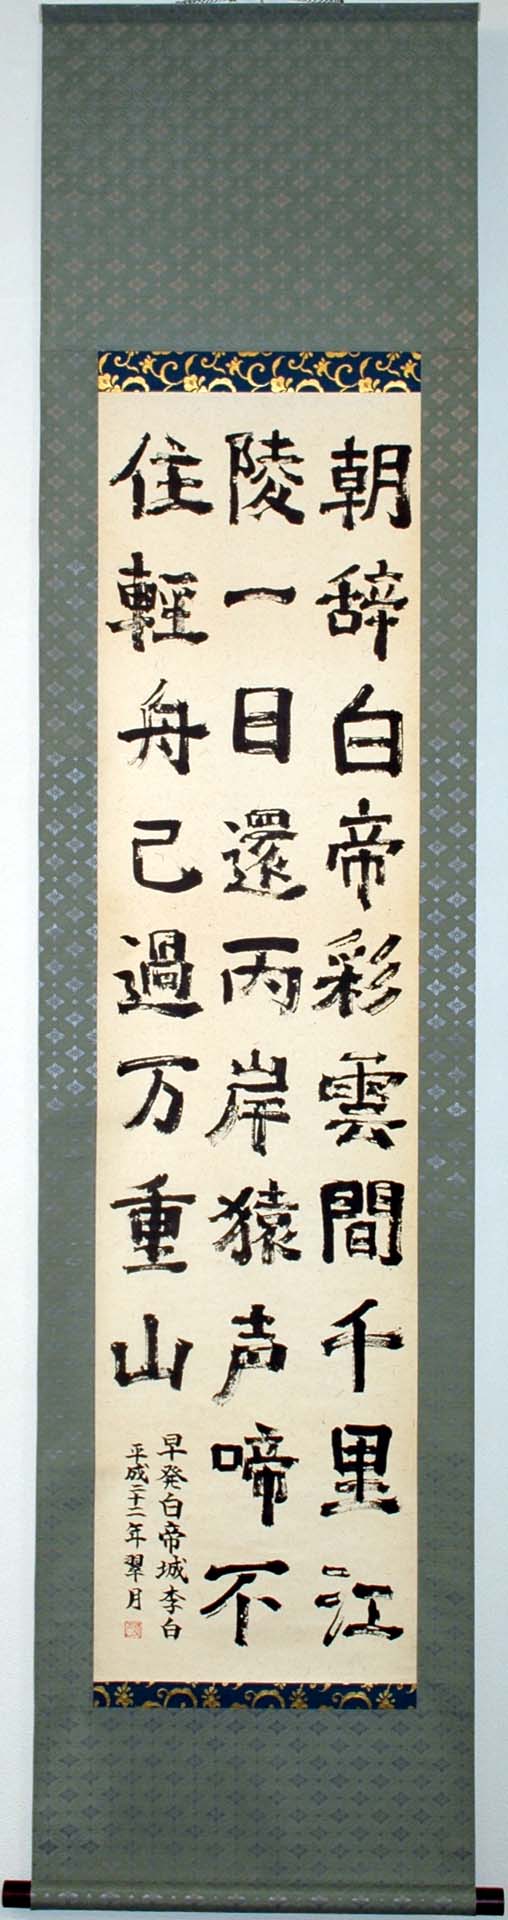 朝辞白帝彩雲間千里江
陵一日還丙岸猿声啼不
住輕舟已過万重山
早発白帝城李白
平成二十二年翠月